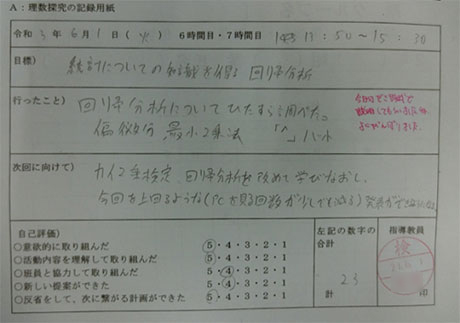 A：理数探究の記録用紙
令和 3 年 6 月 1 日（火） 6時間目・7時間目 13：50～15：30
目標）
統計についての知識を得る 回帰分析
行ったこと）
回帰分析についてひたすら調べた。
偏微分 最小2乗法 「^」ハット
次回に向けて）
カイ2乗検定、回帰分析を改めて学びなおし、
今回を上回るような(PCを見る回数が少しでも減る)発表が
自己評価）
①意欲的に取り組んだ 5・4・3・2・1
②活動内容を理解して取り組んだ 5・4・3・2・1
③班員と協力して取り組んだ 5・4・3・2・1
④新しい提案ができた 5・4・3・2・1
⑤反省をして、次に繋がる計画ができた 5・4・3・2・1
左記の数字の
合計
23
計
指導教員
検
印